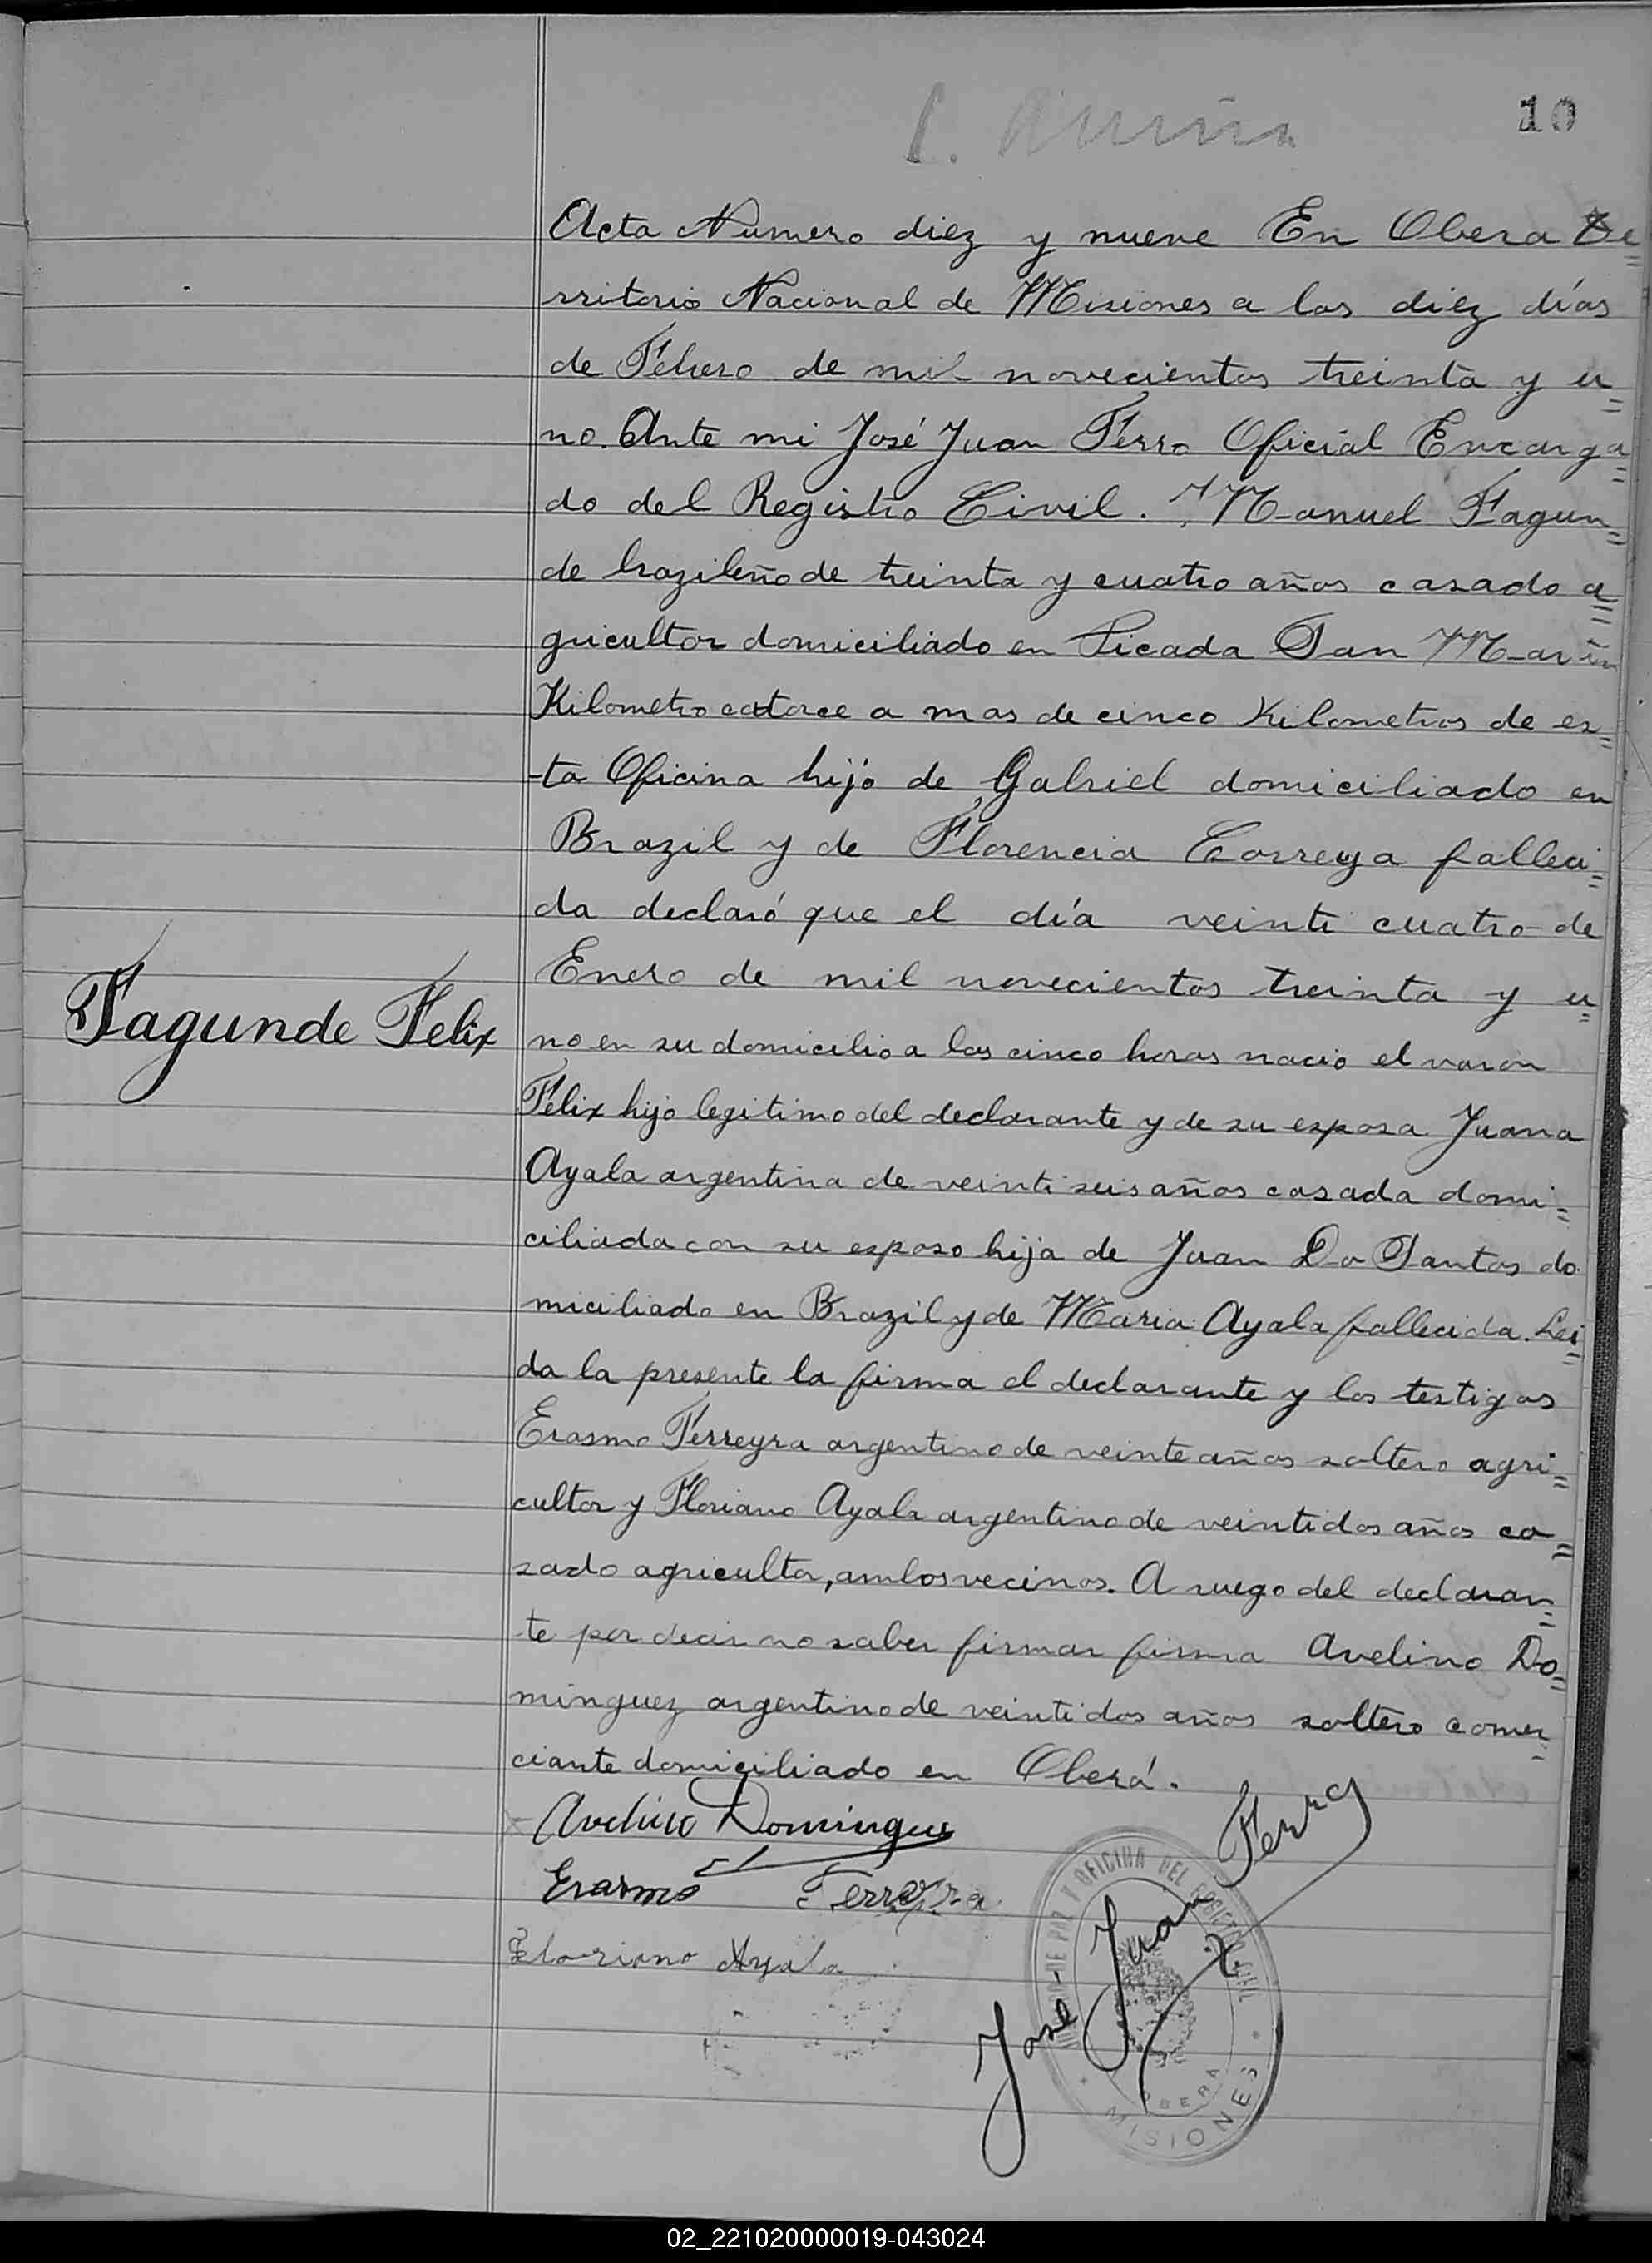 10
Acta Numero diez y nueve En Obera Te=
rritorio Nacional de Misiones a los diez días
de Febrero de mil novecientos treinta y u=
no. Ante mi José Juan Ferro Oficial Encarga=
do del Registro Civil. Manuel Fagun=
de brazileño de treinta y cuatro años casado a=
gricultor domiciliado en Picada San Martin
Kilometro catorce a mas de cinco Kilometros de es=
ta Oficina hijo de Gabriel domiciliado en
Brazil y de Florencia Correya falleci=
da declaró que el día veinti cuatro de
Enero de mil novecientos treinta y u=
Fagunde Felix
no en su domicilio a las cinco horas nacio el varon
Felix hijo legitimo del declarante y de su esposa Juana
Ayala argentina de veinti seis años casada domi=
ciliada con su esposo hija de Juan Do Santos do
miciliado en Brazil y de Maria Ayala fallecida. Lei=
da la presente la firma el declarante y los testigos
Erasmo Ferreyra argentino de veinte años soltero agri=
cultor y Floriano Ayala argentino de veintidos años ca=
sado agricultor, ambos vecinos. A ruego del declaran=
te por decir no saber firmar firma Avelino Do=
minguez argentino de veintidos años soltero comer=
ciante domiciliado en Oberá.
Avelino Dominguez
Erasmo Ferreyra
Floriano Ayala
José Juan Ferro
DE PAZ Y OFICINA DEL REGISTRO CIVIL
OBERA
MISIONES
02_221020000019-043024